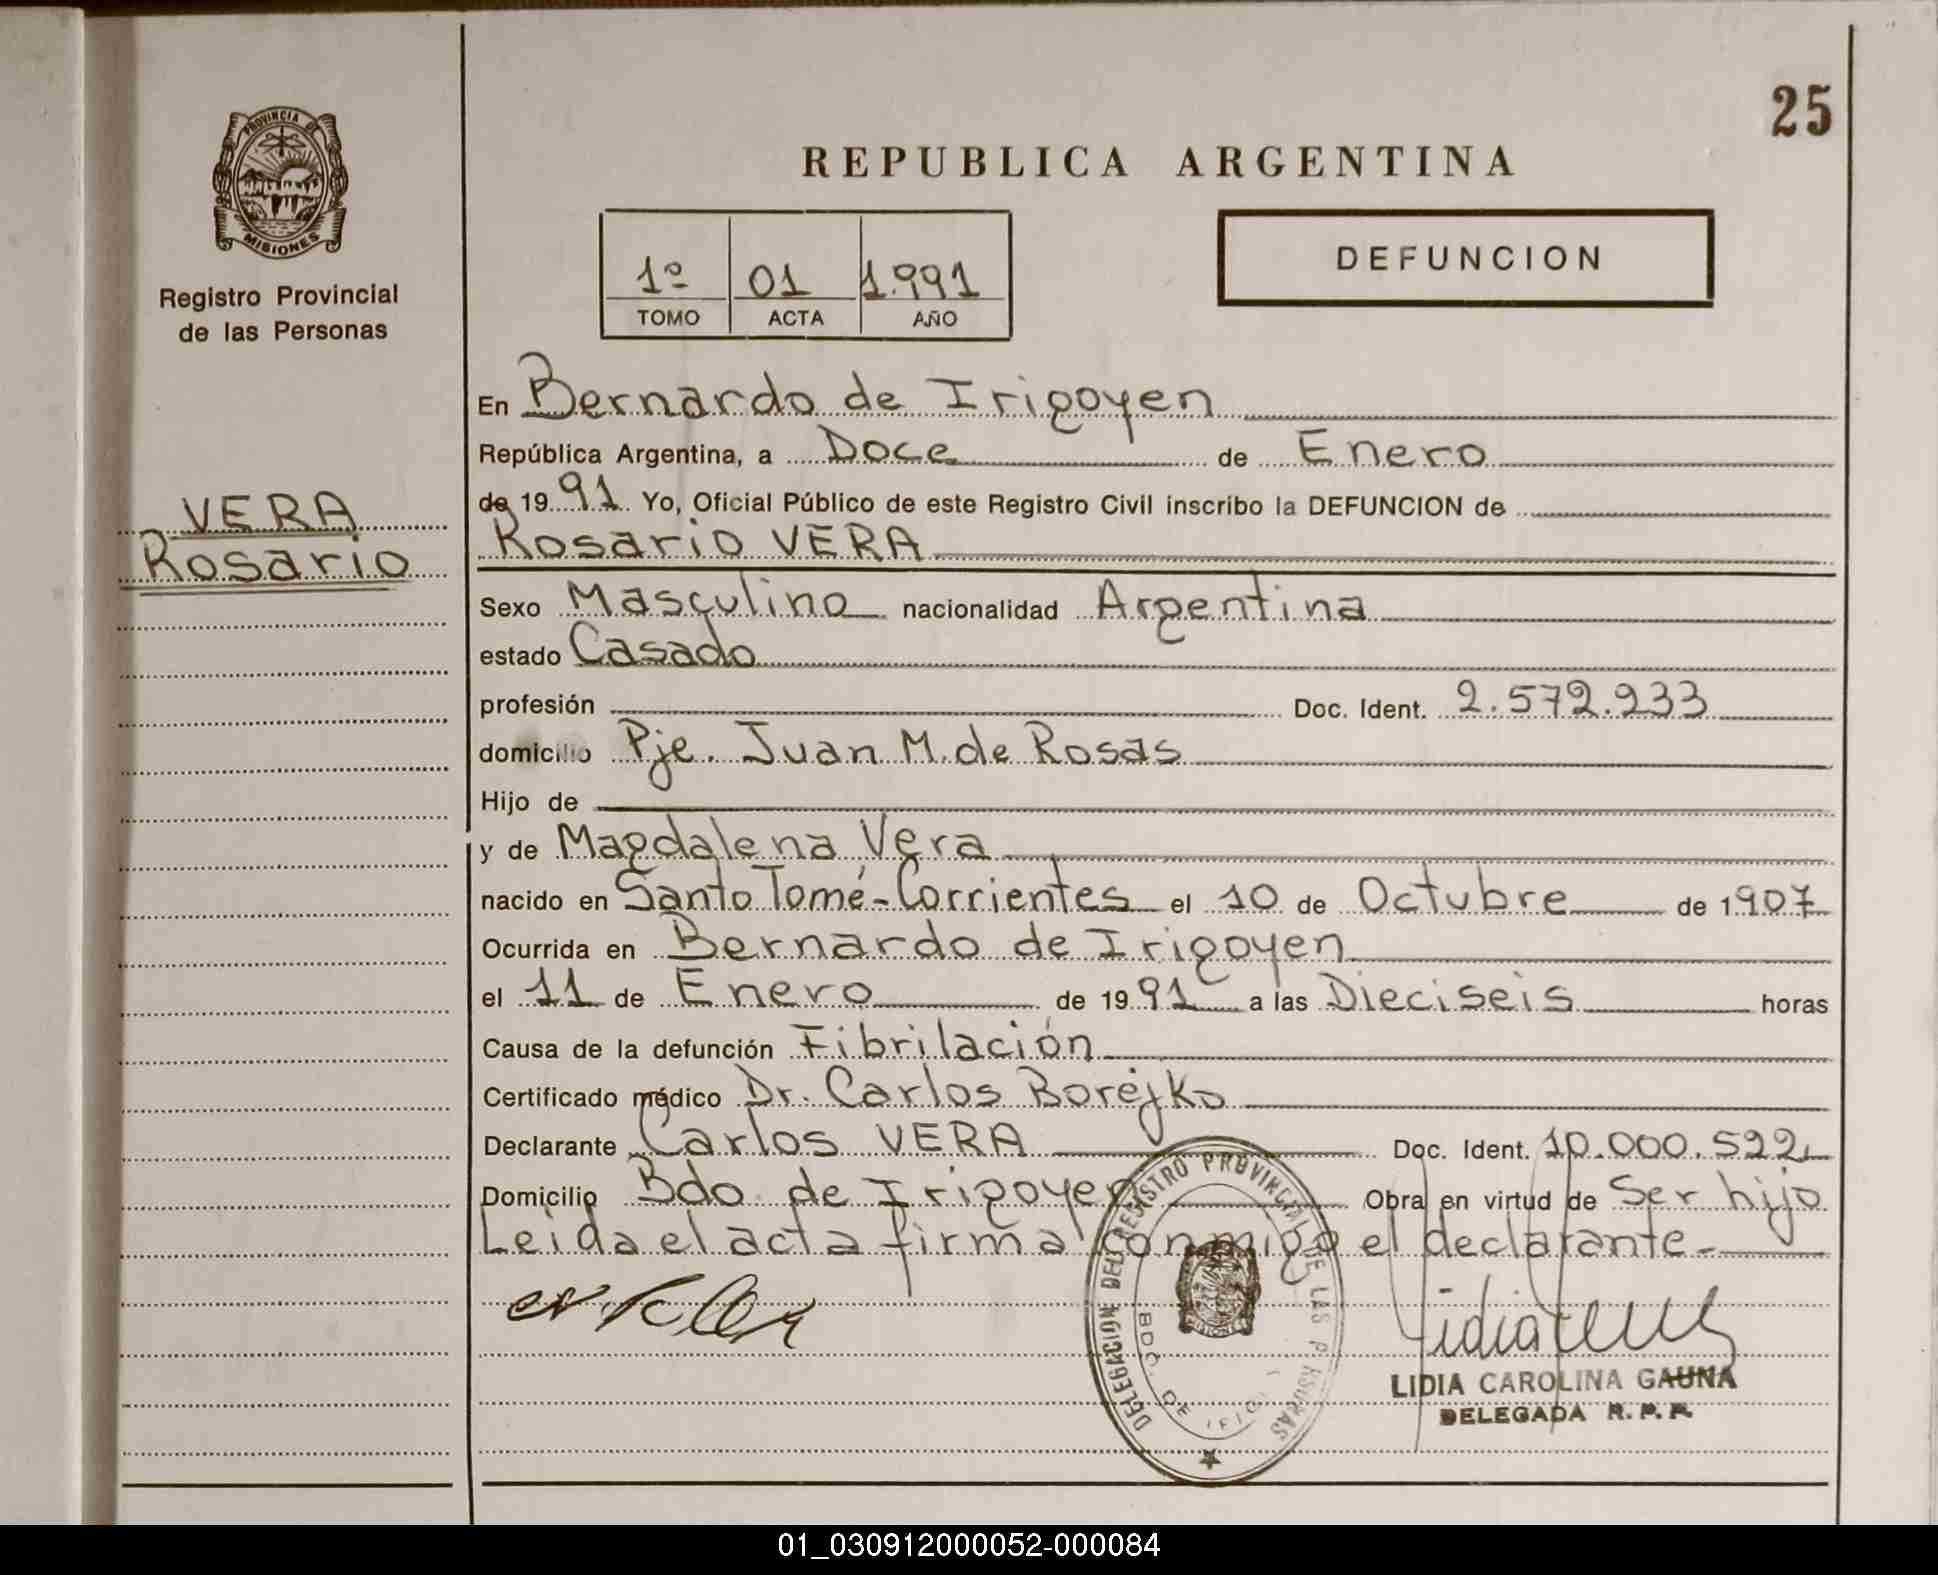 25
PROVINCIA DE
MISIONES
Registro Provincial
de las Personas
REPUBLICA ARGENTINA
1º 01 1.991
TOMO ACTA AÑO
DEFUNCION
VERA
Rosario
En Bernardo de Irigoyen
República Argentina, a Doce de Enero
de 19 91 Yo, Oficial Público de este Registro Civil inscribo la DEFUNCION de
Rosario VERA
Sexo Masculino nacionalidad Argentina
estado Casado
profesión Doc. Ident. 2.572.233
domicilio Pje. Juan M. de Rosas
Hijo de
y de Magdalena Vera
nacido en Santo Tomé-Corrientes el 10 de Octubre de 1907
Ocurrida en Bernardo de Irigoyen
el 11 de Enero de 19 91 a las Dieciseis horas
Causa de la defunción Fibrilación
Certificado médico Dr. Carlos Borejko
Declarante Carlos VERA Doc. Ident. 10.000.522
Domicilio Bdo. de Irigoyen Obra en virtud de Ser hijo
Leida el acta firma conmigo el declarante.-
DELEGACION DEL REGISTRO PROVINCIAL DE LAS PERSONAS
BDO. DE
LIDIA CAROLINA GAUNA
DELEGADA R.P.P.
01_030912000052-000084